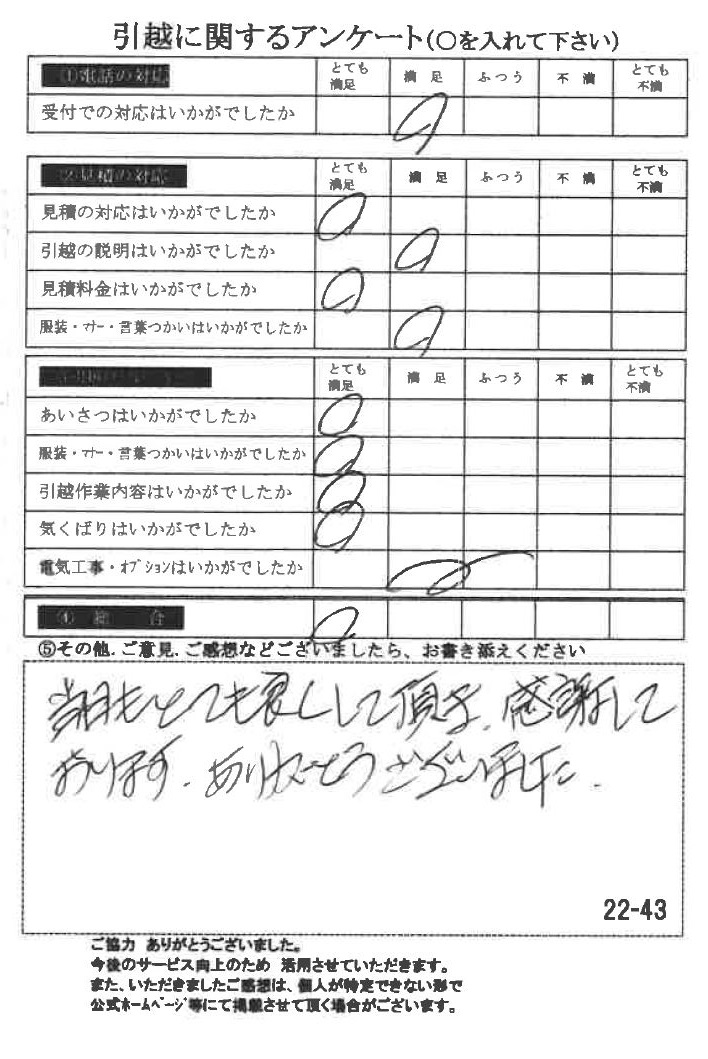 引越に関するアンケート(○を入れて下さい)
①電話の対応 とても満足 満足 ふつう 不満 とても不満
受付での対応はいかがでしたか
②見積の対応 とても満足 満足 ふつう 不満 とても不満
見積の対応はいかがでしたか
引越の説明はいかがでしたか
見積料金はいかがでしたか
服装・マナー・言葉つかいはいかがでしたか
とても満足 満足 ふつう 不満 とても不満
あいさつはいかがでしたか
服装・マナー・言葉つかいはいかがでしたか
引越作業内容はいかがでしたか
気くばりはいかがでしたか
電気工事・オプションはいかがでしたか
④総合
⑤その他.ご意見.ご感想などございましたら、お書き添えください
当日もとても良くして頂き、感謝して
おります。ありがとうございました。
22-43
ご協力 ありがとうございました。
今後のサービス向上のため 活用させていただきます。
また、いただきましたご感想は、個人が特定できない形で
公式ホームページ等にて掲載させて頂く場合がございます。